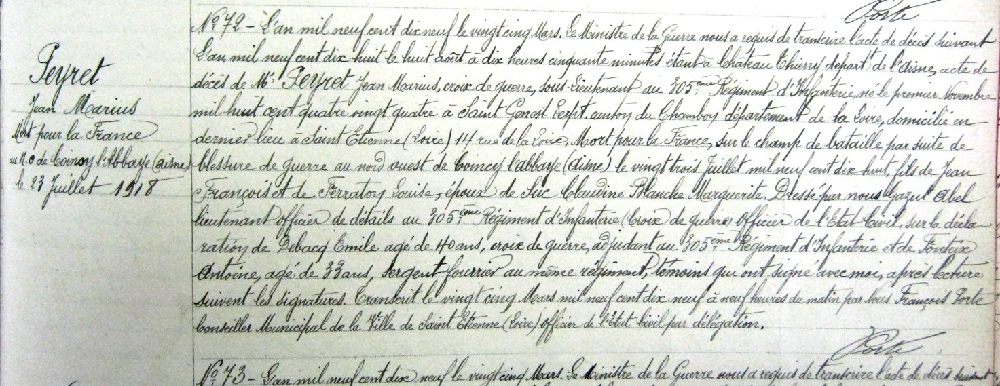 Porte
No 72 - L'an mil neuf cent dix neuf le vingt cinq Mars. Le Ministre de la Guerre nous a requis de transcrire l'acte de décès suivant
L'an mil neuf cent dix huit le huit août à dix heures cinquante minutes étant à Château Thierry départt de l'Aisne, acte de
décès de Mr Peyret Jean Marius, croix de guerre, sous-lieutenant au 305ème Régiment d'Infanterie né le premier Novembre
mil huit cent quatre vingt quatre à Saint Genest canton du Chambon département de la Loire, domicilié en
dernier lieu à Saint Etienne (Loire) 14 rue de la Loire, Mort pour la France, sur le champ de bataille par suite de
blessure de guerre au nord ouest de Coincy l'abbaye (aisne) le vingt trois Juillet mil neuf cent dix huit, fils de Jean
François et de Louise, époux de Claudine Blanche Marguerite. Dressé par nous Abel
lieutenant officier de détails au 305ème Régiment d'Infanterie (Croix de guerre) Officier de l'Etat Civil, sur la décla
ration de Debacq Emile agé de 40 ans, croix de guerre, adjudant au 305ème Régiment d'Infanterie et de
Antoine, agé de 33 ans, sergent fourrier au même régiment, témoins qui ont signé avec moi, après lecture
suivent les signatures. Transcrit le vingt cinq Mars mil neuf cent dix neuf à neuf heures du matin par nous François Porte
Conseiller Municipal de la Ville de Saint Etienne (Loire) officier de l'état Civil par délégation.
Porte
Peyret
Jean Marius
Mort pour la France
au N.O de Coincy l'Abbaye (aisne)
le 23 Juillet 1918
No 73 - L'an mil neuf cent dix neuf le vingt cinq Mars. Le Ministre de la Guerre nous a requis de transcrire l'acte de décès suivant